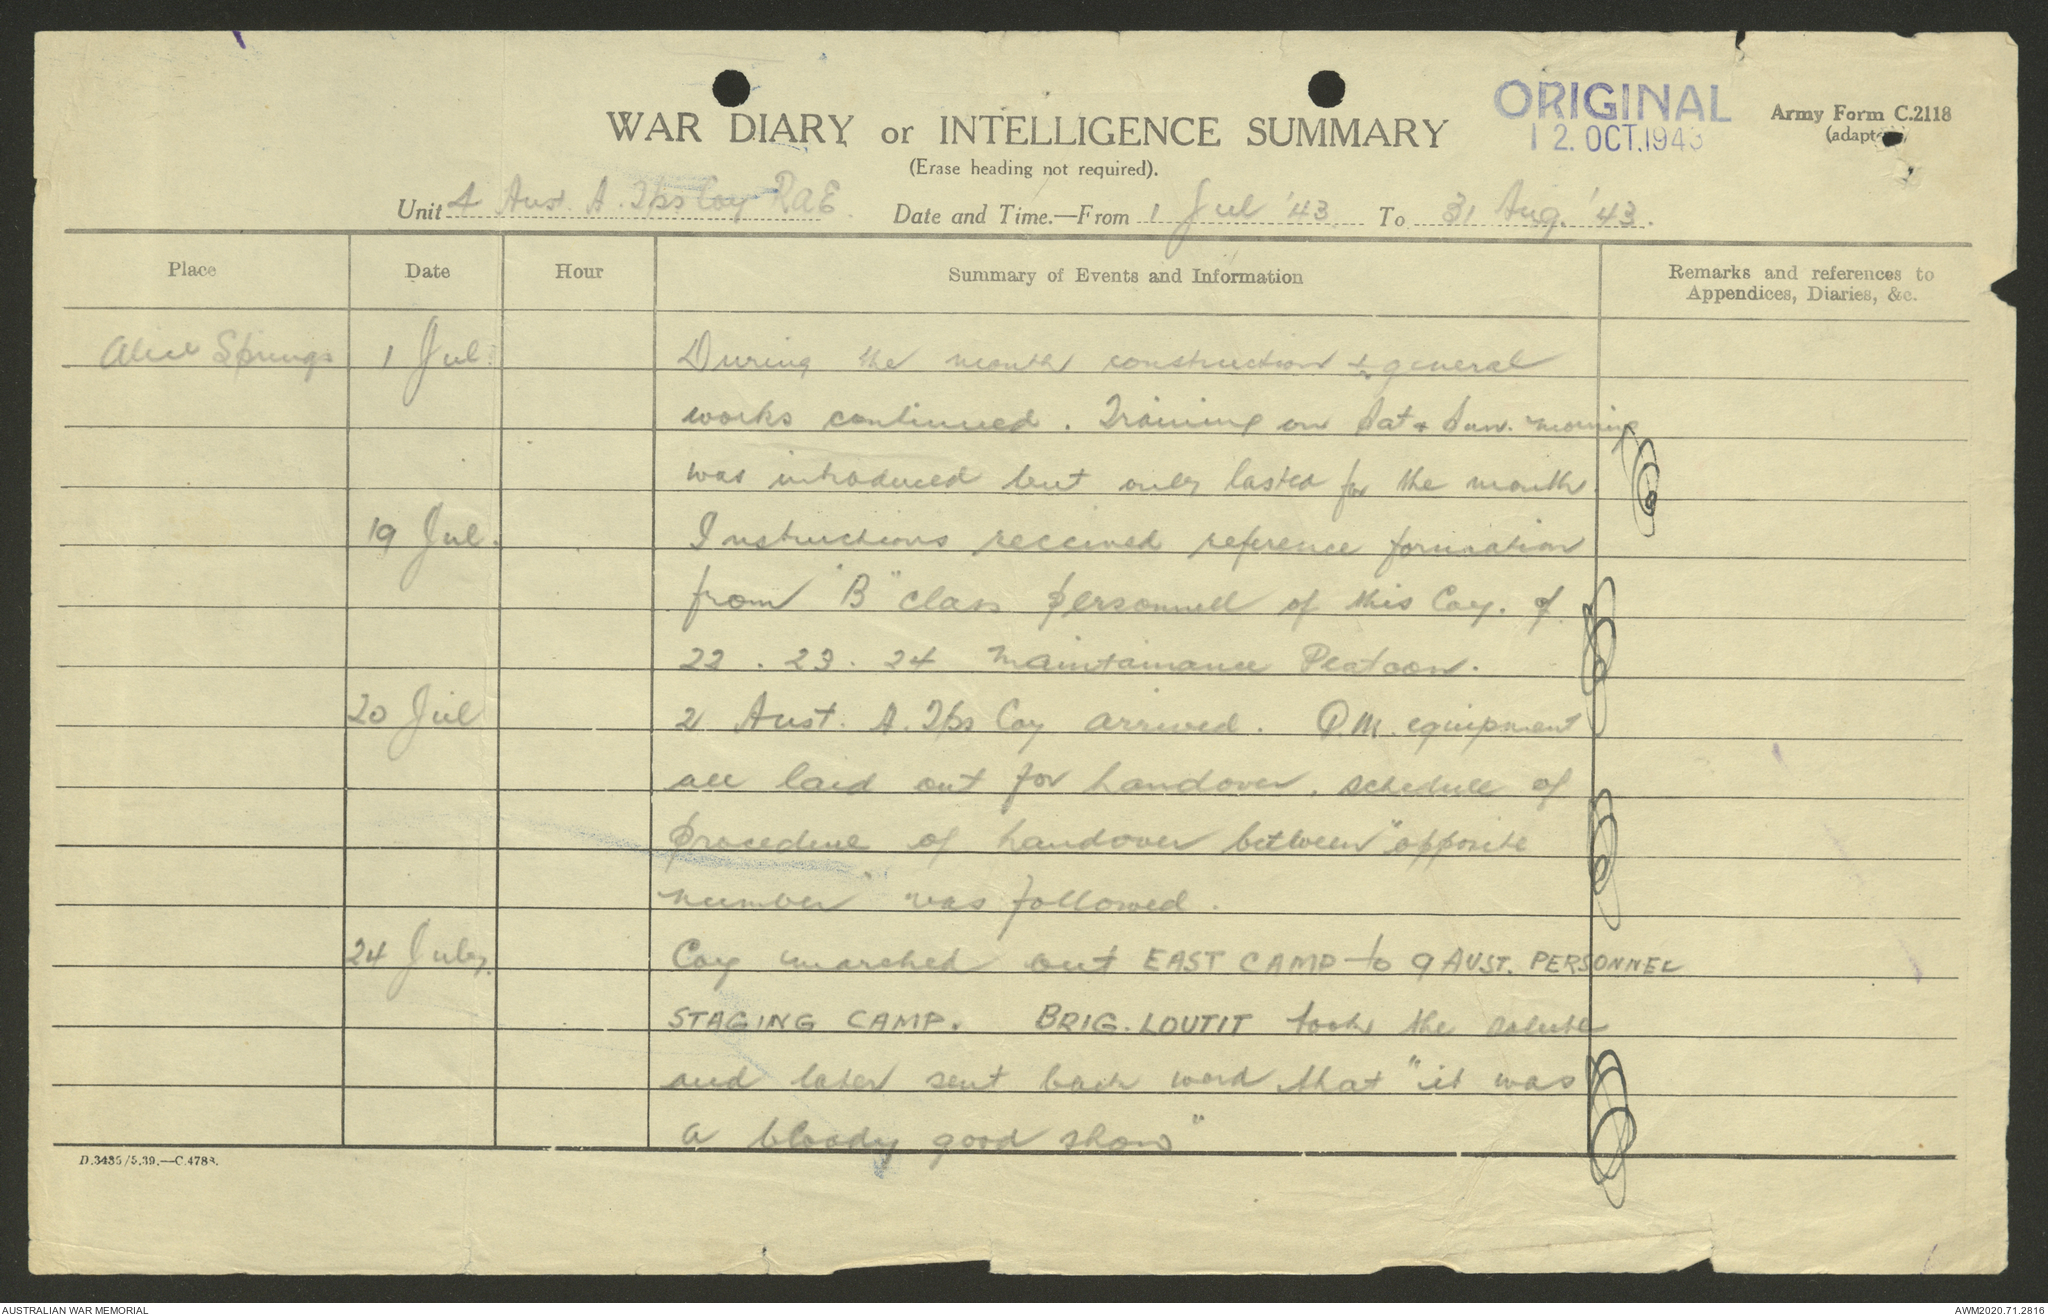 ORIGINAL
12. OCT. 1943
Army Form C.2118
(adapt
WAR DIARY or INTELLIGENCE SUMMARY
(Erase heading not required).
Unit 4 Aust. A. Tps Coy RAE. Date and Time.—From 1 Jul '43 To 31 Aug. '43.
Place Date Hour Summary of Events and Information Remarks and references to
Appendices, Diaries, &c.
Alice Springs 1 Jul. During the month construction & general
works continued. Training on Sat & Sun. morning
was introduced but only lasted for the month.
19 Jul. Instructions received reference formation
from "B" class personnel of this Coy. of
22. 23. 24 Maintainance Platoon.
20 Jul 2 Aust. A. Tps Coy arrived. Q.M. equipment
all laid out for handover, schedule of
procedure of handover between "opposite
number" was followed.
24 July. Coy marched out EAST CAMP to 9 AUST. PERSONNEL
STAGING CAMP. BRIG. LOUTIT took the salute
and later sent back word that "it was
a bloody good show"
D.3436/5.39.—C.4788.
AUSTRALIAN WAR MEMORIAL
AWM2020.71.2816